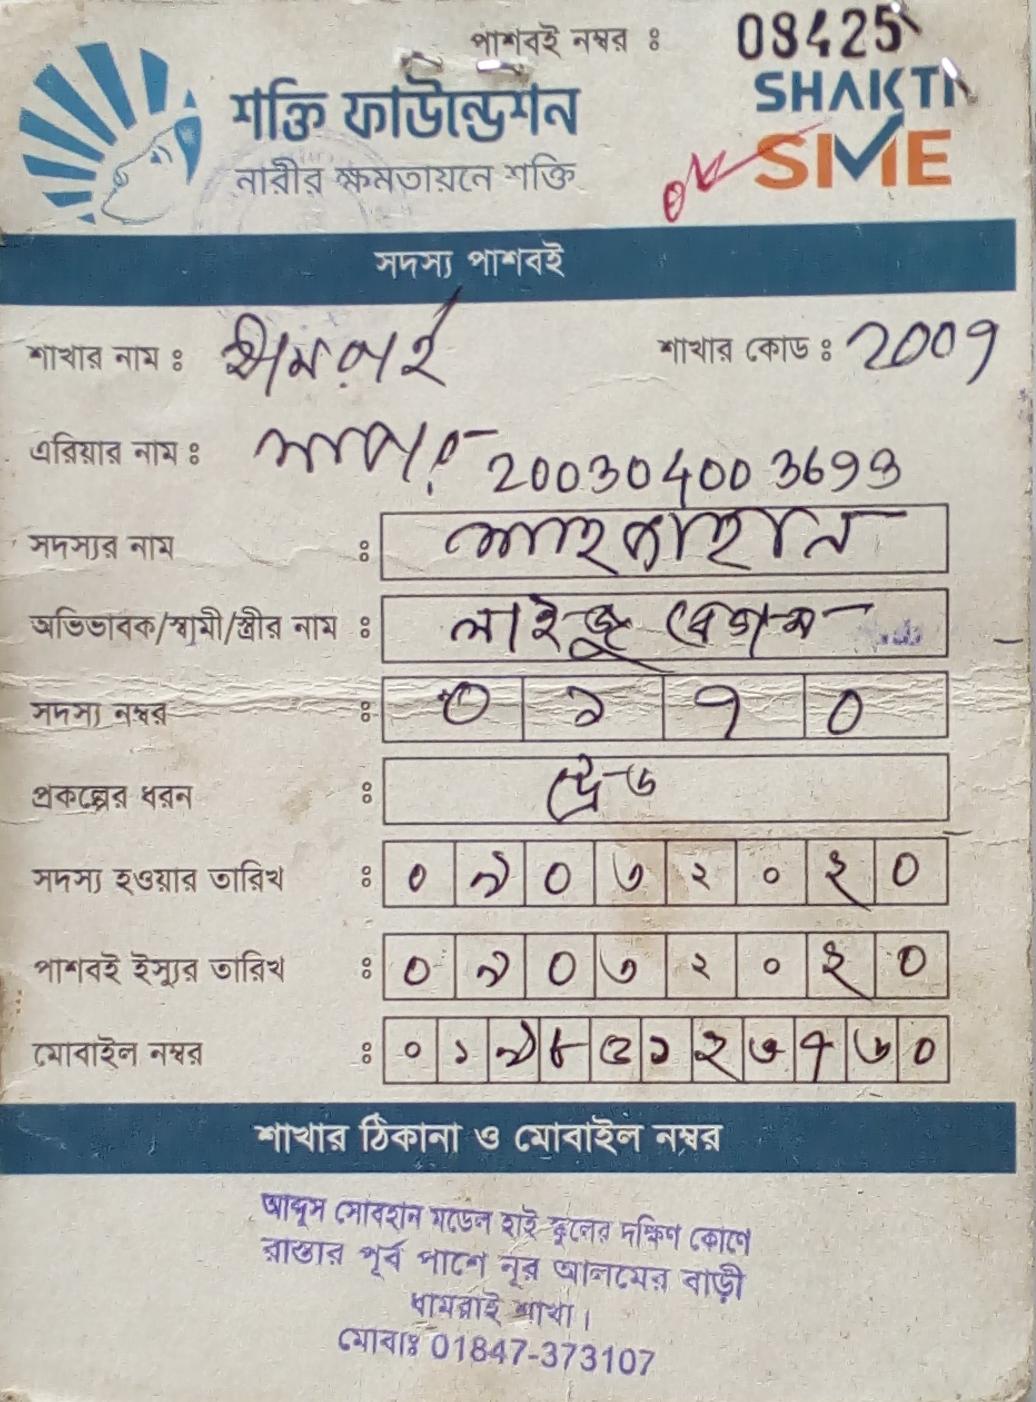 পাশবই নম্বর ঃ 08425
শক্তি ফাউন্ডেশন
নারীর ক্ষমতায়নে শক্তি
SHAKTI
SME
সদস্য পাশবই
শাখার নাম ঃ ধামরাই শাখার কোড ঃ 2009
এরিয়ার নাম ঃ
200304003693
সদস্যর নাম ঃ শাহজাহান
অভিভাবক/স্বামী/স্ত্রীর নাম ঃ লাইজু বেগম
সদস্য নম্বর ঃ ৩ ১ ৭ ০
প্রকল্পের ধরন ঃ
সদস্য হওয়ার তারিখ ঃ ০ ৯ ০ ৩ ২ ০ ২ ০
পাশবই ইস্যুর তারিখ ঃ ০ ৯ ০ ৩ ২ ০ ২ ০
মোবাইল নম্বর ঃ
শাখার ঠিকানা ও মোবাইল নম্বর
আব্দুস সোবহান মডেল হাই স্কুলের দক্ষিণ কোণে
রাস্তার পূর্ব পাশে নূর আলমের বাড়ী
ধামরাই শাখা।
মোবাঃ 01847-373107